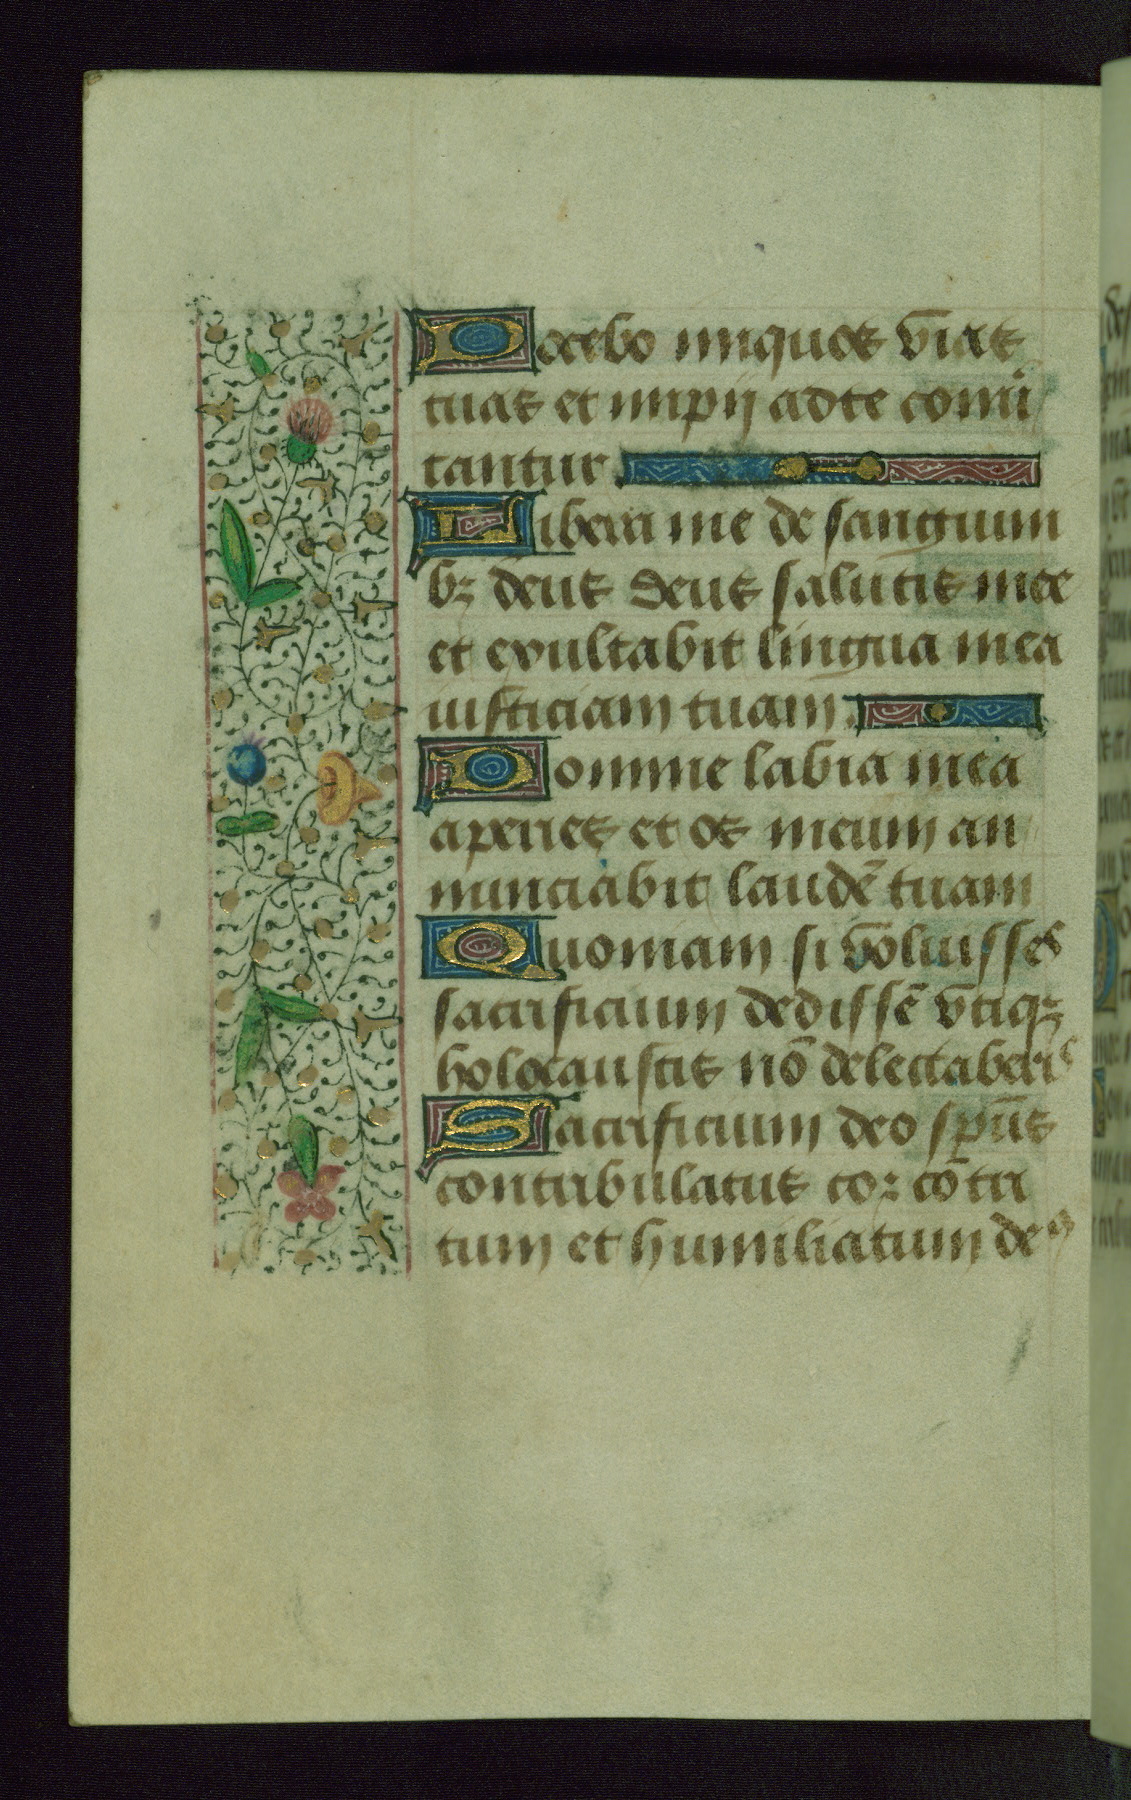 Docebo iniquos v̄ias
tuas et impij adte conu̇
tantur
Libera me de sanguini
bꝫ deus deus salutis mee
et exultabit lingua mea
iusticiam tuam.
Domine labia mea
aperies et os meum an
nunciabit laudē tuam
Quoniam si v̄oluisses
sacrificium dedissē vtiqꝫ
holocaustis nō delectaberis
Sacrificium deo spūs
contribulatus coꝛ cōtri
tum et humiliatum deꝰ